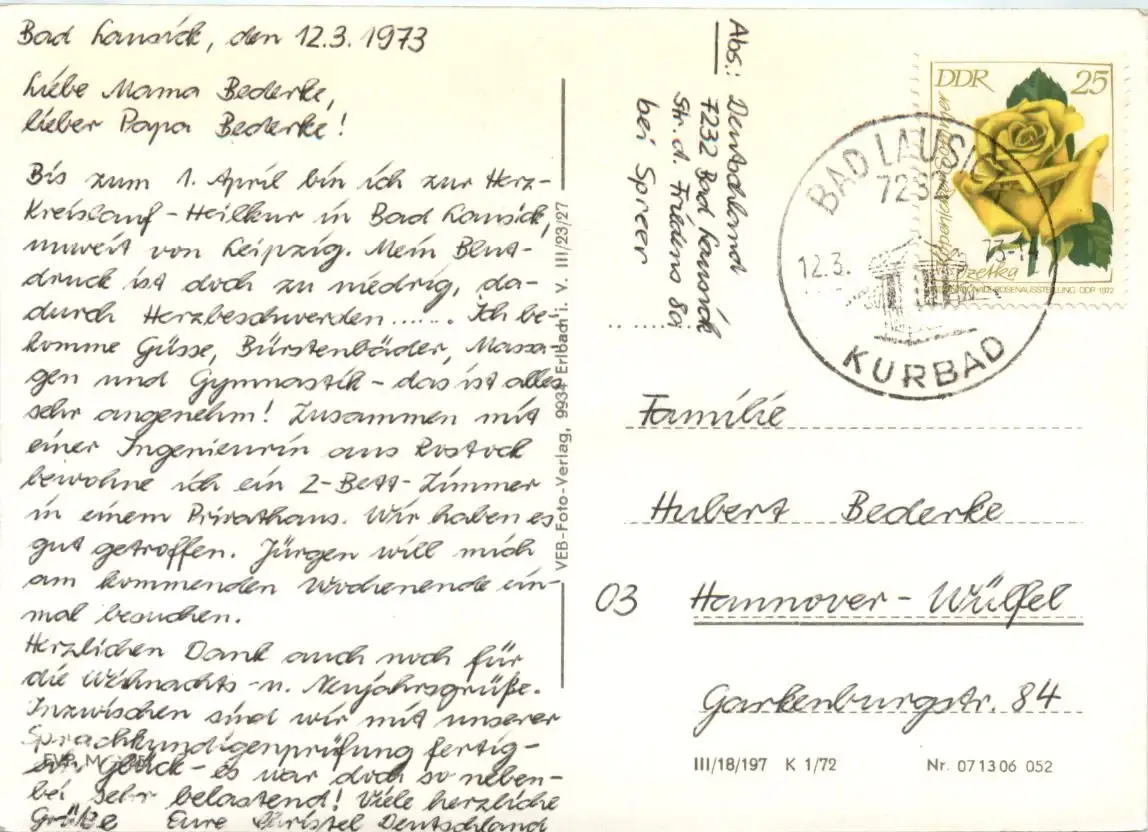 Bad Lausick, den 12.3.1973
Liebe Mama Bederke,
lieber Papa Bederke!
Bis zum 1. April bin ich zur Herz-
Kreislauf-Heilkur in Bad Lausick,
unweit von Leipzig. Mein Blut-
druck ist doch zu niedrig, da-
durch Herzbeschwerden....... Ich be-
komme Güsse, Bürstenbäder, Massa-
gen und Gymnastik - das ist alles
sehr angenehm! Zusammen mit
einer Ingenieurin aus Rostock
bewohne ich ein 2-Bett-Zimmer
in einem Privathaus. Wir haben es
gut getroffen. Jürgen will mich
am kommenden Wochenende ein-
mal besuchen.
Herzlichen Dank auch noch für
die Weihnachts- u. Neujahrsgrüße.
Inzwischen sind wir mit unserer
Sprachkundigenprüfung fertig-
Glück - es war doch so neben-
bei sehr belastend! Viele herzliche
Grüße Eure Christel Deutschland
VEB-Foto-Verlag, 9934 Erlbach i. V. III/23/27
Abs: Deutschland
7232 Bad Lausick
Str. d. Friedens 80
bei Spreer
DDR 25
INTERNATIONALE ROSENAUSSTELLUNG DDR 1972
BAD LAUSICK
7232
12.3. 73-14
KURBAD
Familie
Hubert Bederke
03 Hannover-Wülfel
Garkenburgstr. 84
III/18/197 K 1/72 Nr. 071306 052